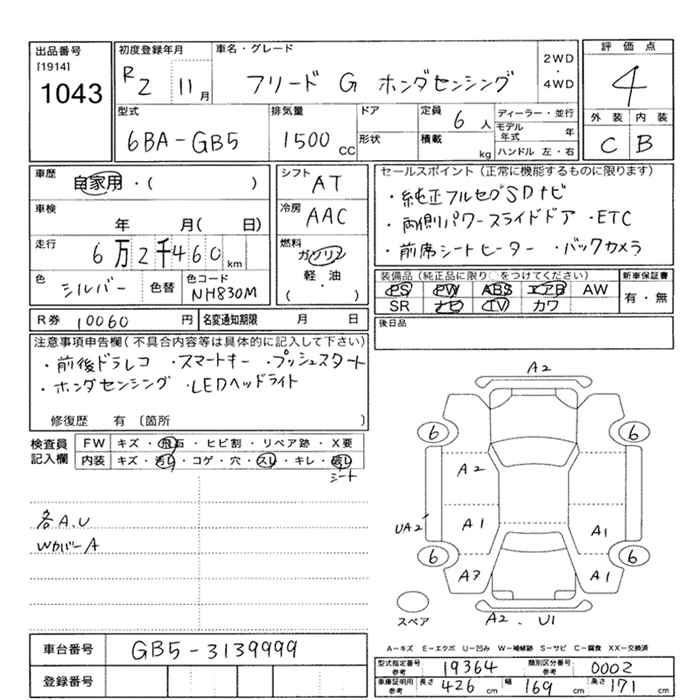 出品番号
[1914]
1043
初度登録年月
R2 11月
車名・グレード
フリード G ホンダセンシング
2WD
・
4WD
評価点
4
外装 内装
C B
型式
6BA-GB5
排気量
1500 CC
ドア
形状
定員 6人
積載 kg
ディーラー・並行
モデル年式 年
ハンドル 左・右
車歴
自家用・( )
車検
年 月( 日)
走行
6万2千460km
色
シルバー 色替
色コード
NH830M
シフト
AT
冷房
AAC
燃料
ガソリン
軽・油
( )
セールスポイント(正常に機能するものに限ります)
・純正フルセグSDナビ
・両側パワースライドドア ・ETC
・前席シートヒーター ・バックカメラ
装備品(純正品に限り○をつけてください)
PS PW ABS エアB AW
SR ナビ TV カワ
新車保証書
有・無
R券 10060 円
名変通知期限 月 日
後日品
注意事項申告欄(不具合内容等は具体的に記入して下さい)
・前後ドラレコ ・スマートキー ・プッシュスタート
・ホンダセンシング ・LEDヘッドライト
修復歴 有 〔箇所 〕
検査員記入欄
FW キズ・飛石・ヒビ割・リペア跡・X要
内装 キズ・汚れ・コゲ・穴・スレ・キレ・破れ
シート
各A.U
WカバーA
A2
6 6
A2
UA2'
A1 A1
6 6
A2 A1
スペア
A2 . U1
A-キズ E-エクボ U-凹み W-補修跡 S-サビ C-腐食 XX-交換済
車台番号 GB5-3139999
登録番号
型式指定番号 参考 19364
類別区分番号 参考 0002
車庫証明用 参考 長さ 426 cm 幅 169 cm 高さ 171 cm